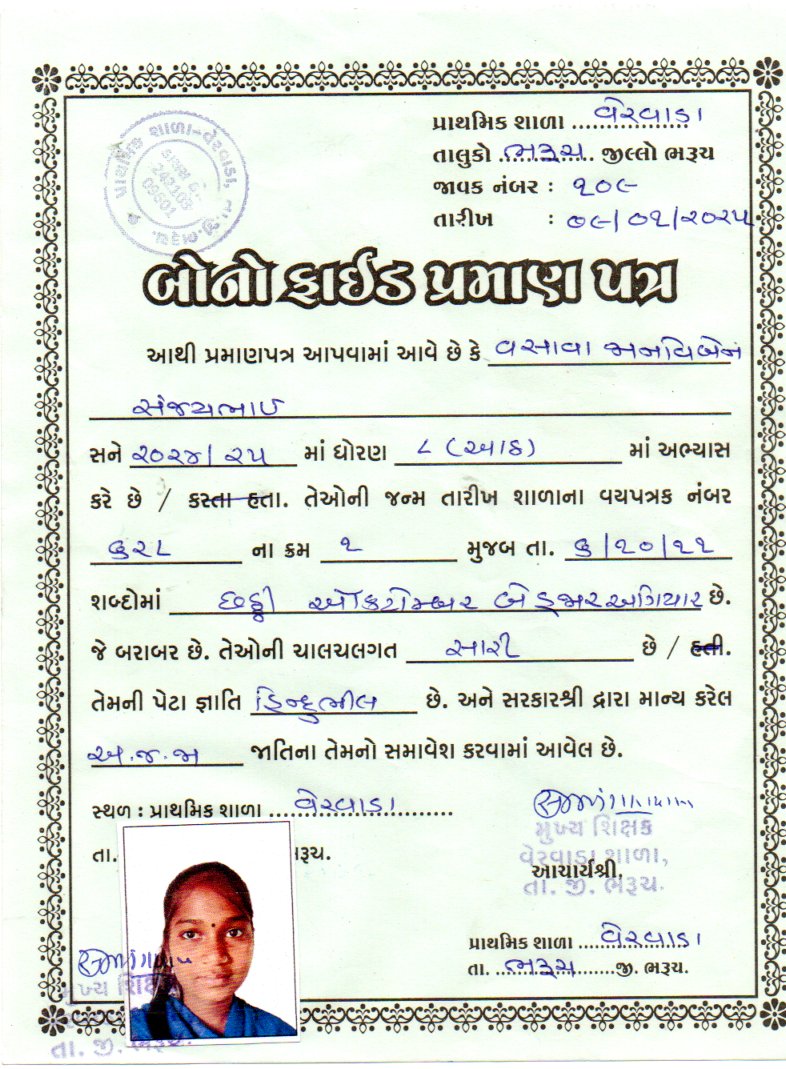 પ્રાથમિક શાળા ..વેરવાડા..
તાલુકો ..ભરૂચ.. જીલ્લો ભરૂચ
જાવક નંબર : ૧૦૯
તારીખ : ૦૯/૦૧/૨૦૨૫
પ્રાથમિક શાળા-વેરવાડા, તા.જી.ભરૂચ.
બોનો ફાઈડ પ્રમાણ પત્ર
આથી પ્રમાણપત્ર આપવામાં આવે છે કે વસાવા મનવિબેન
સંજયભાઈ
સને ૨૦૨૪/૨૫ માં ધોરણ ૮ (આઠ) માં અભ્યાસ
કરે છે / કરતા હતા. તેઓની જન્મ તારીખ શાળાના વયપત્રક નંબર
૬૨૮ ના ક્રમ ૧ મુજબ તા. ૬/૧૦/૧૧
શબ્દોમાં છઠ્ઠી ઓક્ટોમ્બર બે હજાર અગિયાર છે.
જે બરાબર છે. તેઓની ચાલચલગત સારી છે / હતી.
તેમની પેટા જ્ઞાતિ હિન્દુભીલ છે. અને સરકારશ્રી દ્વારા માન્ય કરેલ
અ.જ.જા જાતિના તેમનો સમાવેશ કરવામાં આવેલ છે.
સ્થળ : પ્રાથમિક શાળા ..વેરવાડા..
તા. ભરૂચ.
મુખ્ય શિક્ષક
વેરવાડા શાળા,
આચાર્યશ્રી,
તા. જી. ભરૂચ.
પ્રાથમિક શાળા ..વેરવાડા
તા. ..ભરૂચ..જી. ભરૂચ.
મુખ્ય શિક્ષક
તા. જી. ભરૂચ.